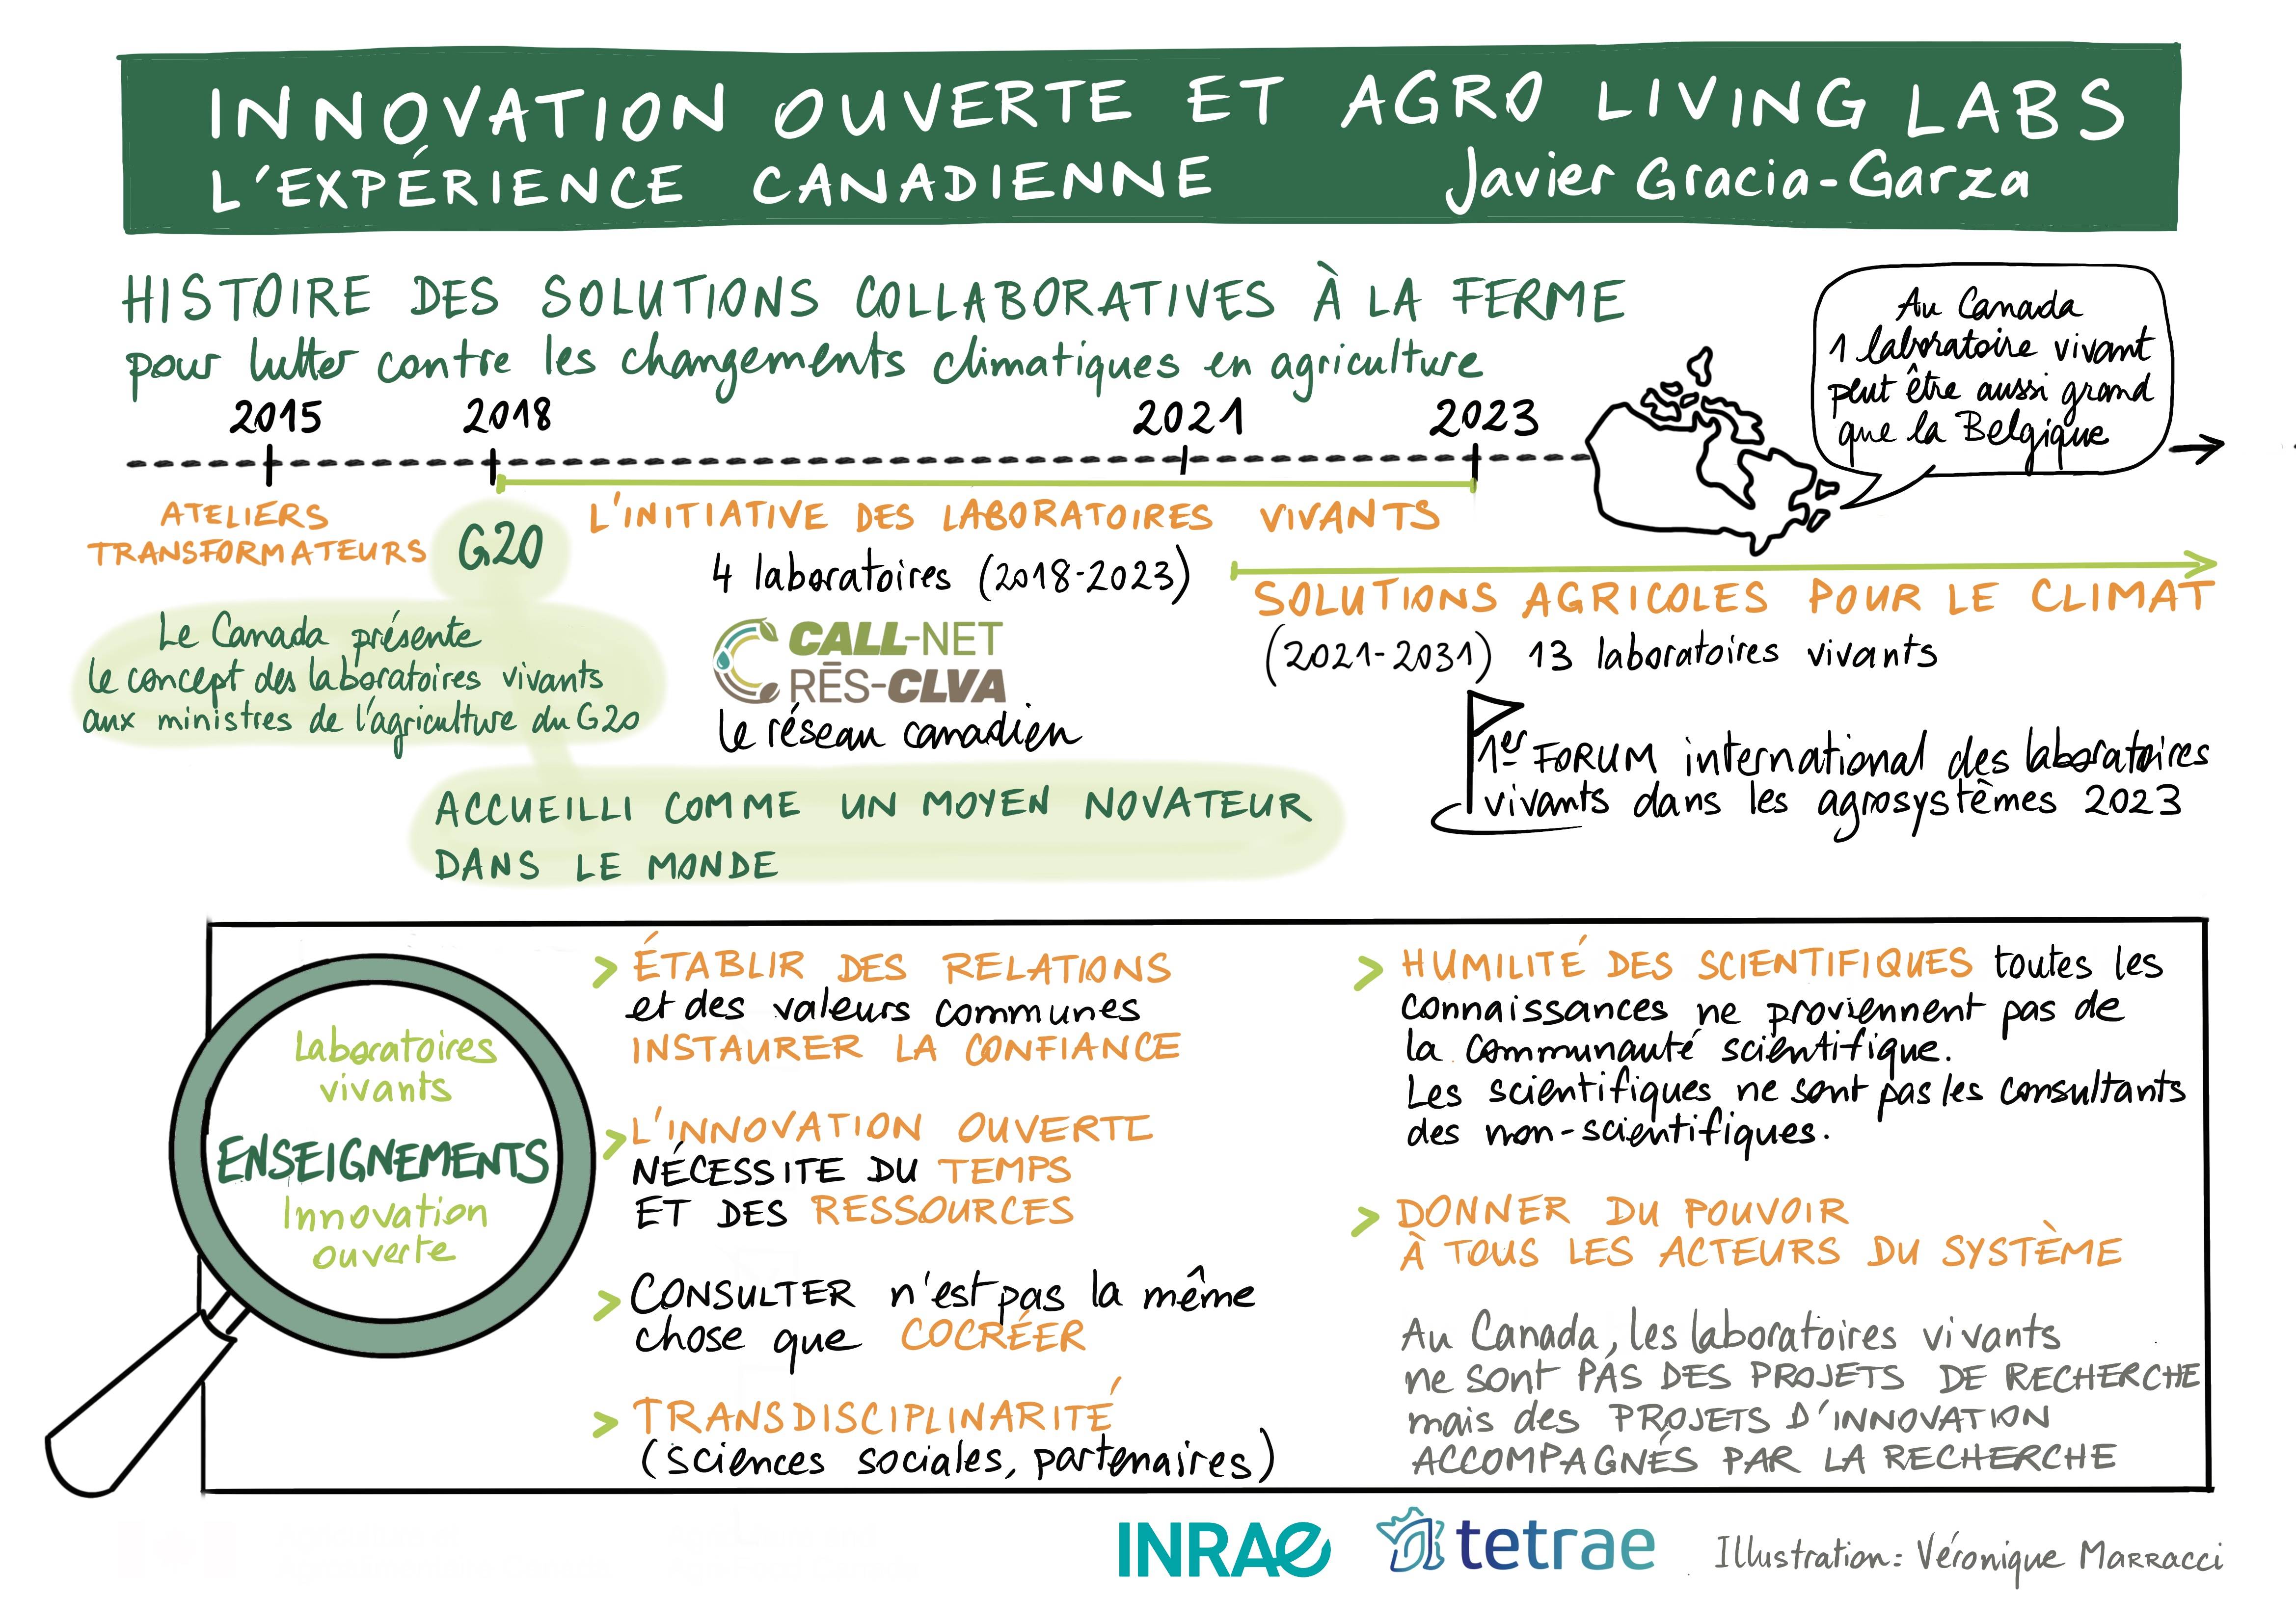 INNOVATION OUVERTE ET AGRO LIVING LABS
L'EXPÉRIENCE CANADIENNE Javier Gracia-Garza
HISTOIRE DES SOLUTIONS COLLABORATIVES À LA FERME
pour lutter contre les changements climatiques en agriculture
Au Canada
1 laboratoire vivant
peut être aussi grand
que la Belgique
2015 2018 2021 2023
ATELIERS
TRANSFORMATEURS
G20
Le Canada présente
le concept des laboratoires vivants
aux ministres de l'agriculture du G20
ACCUEILLI COMME UN MOYEN NOVATEUR
DANS LE MONDE
L'INITIATIVE DES LABORATOIRES VIVANTS
4 laboratoires (2018-2023)
CALL-NET
RĒS-CLVA
le réseau canadien
SOLUTIONS AGRICOLES POUR LE CLIMAT
(2021-2031) 13 laboratoires vivants
1er FORUM international des laboratoires
vivants dans les agrosystèmes 2023
Laboratoires
vivants
ENSEIGNEMENTS
Innovation
ouverte
> ÉTABLIR DES RELATIONS
et des valeurs communes
INSTAURER LA CONFIANCE
> L'INNOVATION OUVERTE
NÉCESSITE DU TEMPS
ET DES RESSOURCES
> CONSULTER n'est pas la même
chose que COCRÉER
> TRANSDISCIPLINARITÉ
(sciences sociales, partenaires)
> HUMILITÉ DES SCIENTIFIQUES toutes les
connaissances ne proviennent pas de
la communauté scientifique.
Les scientifiques ne sont pas les consultants
des non-scientifiques.
> DONNER DU POUVOIR
À TOUS LES ACTEURS DU SYSTÈME
Au Canada, les laboratoires vivants
ne sont PAS DES PROJETS DE RECHERCHE
mais des PROJETS D'INNOVATION
ACCOMPAGNÉS PAR LA RECHERCHE
INRAE
tetrae
Illustration: Véronique MARRACCI